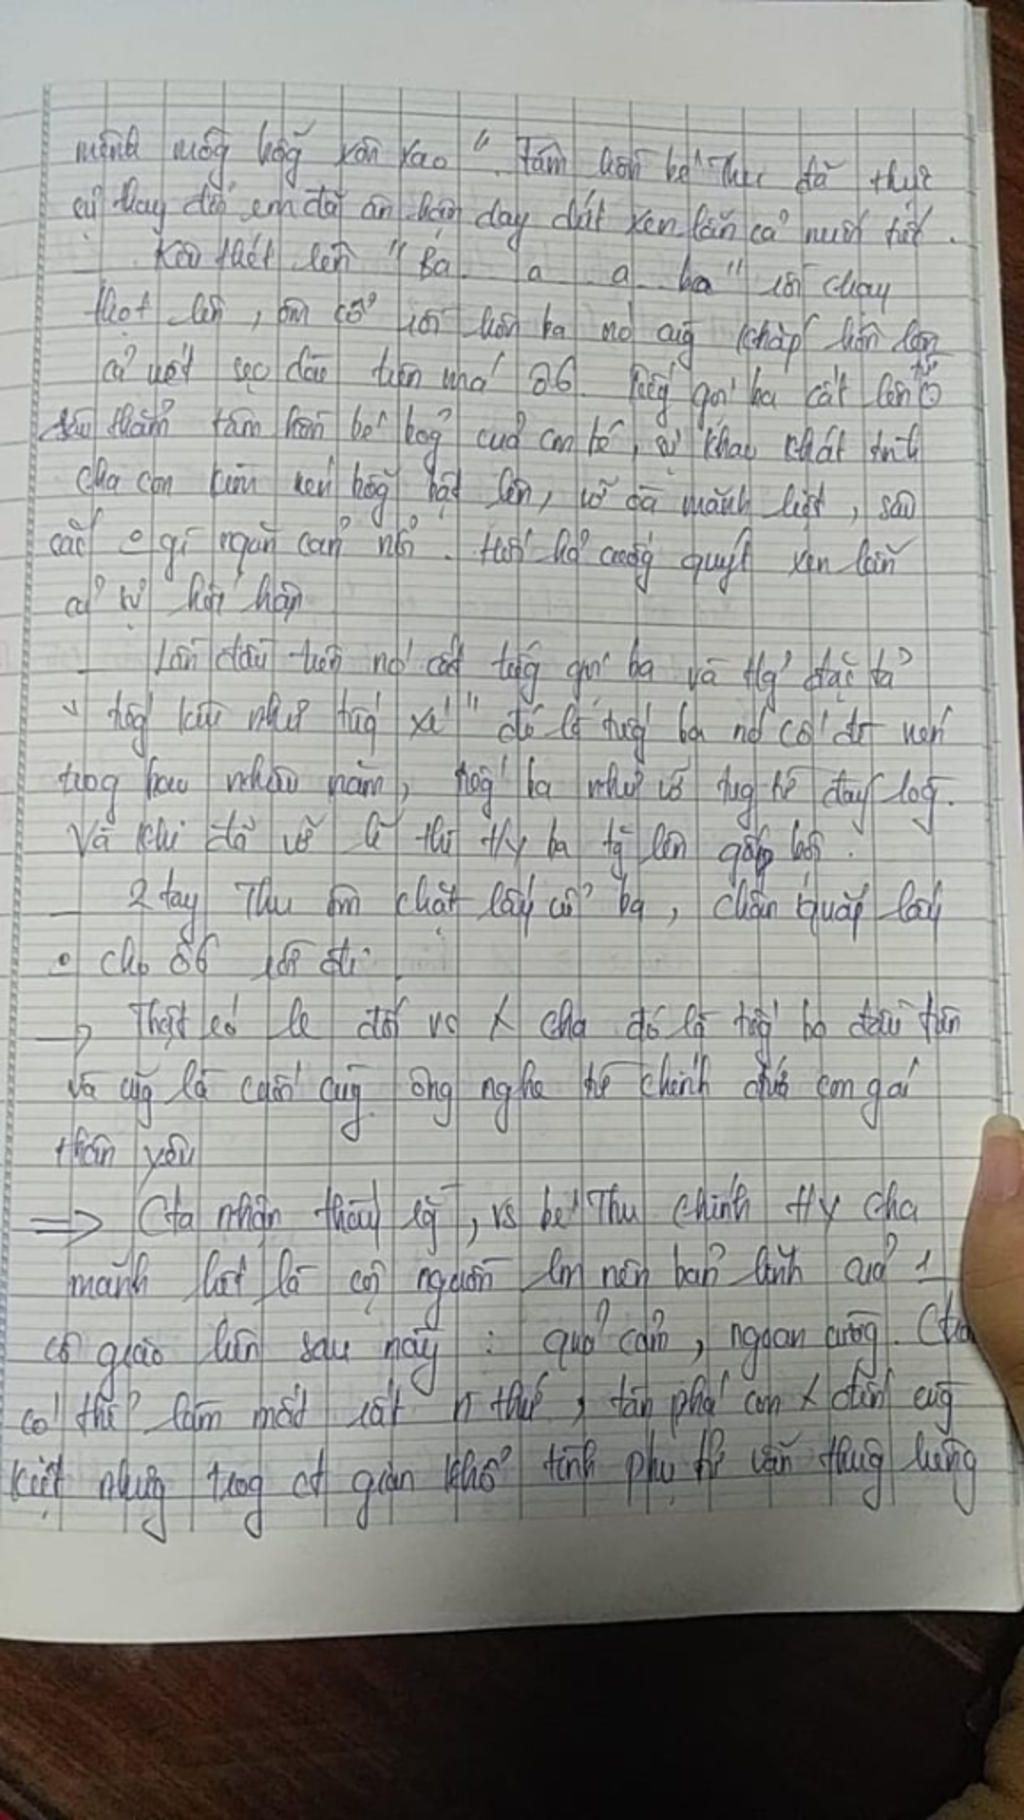 mênh mông bỗg xôn xao". Tâm hồn bé Thu đã thực
sự thay đổi em đã ân hận day dứt xen lẫn cả nuối tiếc.
- Kêu thét lên "Ba a a ba" rồi chạy
thót lên, ôm cổ rồi hôn ba nó cùg khắp hôn lên
cả vết sẹo dài trên má ôg. Tiếg gọi ba cất lên từ
sâu thẳm tâm hồn bé bỏg của con bé, sự khao khát tình
cha con kìm nén bỗg bật lên, vỡ oà mãnh liệt, sâu
sắc o gì ngăn cản nổi. Hối hả cuốg quýt xen lẫn
cả sự hối hận
- Lần đầu tiên nó cất tiếg gọi ba và tg' đặc tả
" tiếg kêu như tiếg xé" đó là tiếg ba nó cố đè nén
trog bao nhiêu năm, tiếg ba như vỡ tug từ đáy lòg.
Và khi đã vỡ lẽ thì ty ba tg lên gấp bội.
- 2 tay Thu ôm chặt lấy cổ ba, chân quắp lấy
o cho ôg rời đi.
-> Thật éo le đối vs X cha đó là tiếg ba đầu tiên
và cũg là cuối cùg ông nghe từ chính đứa con gái
thân yêu
=> Cta nhận thấy rg, vs bé Thu chính ty cha
mãnh liệt là cội nguồn lm nên bản lĩnh của 1
cô giao liên sau này : quả cảm, ngoan cườg. Cta
có thể làm mất rất n thứ, tàn phá con X đến cùg
kiệt nhưng trog ct gian khổ tình phụ tử vẫn thiêg liêng